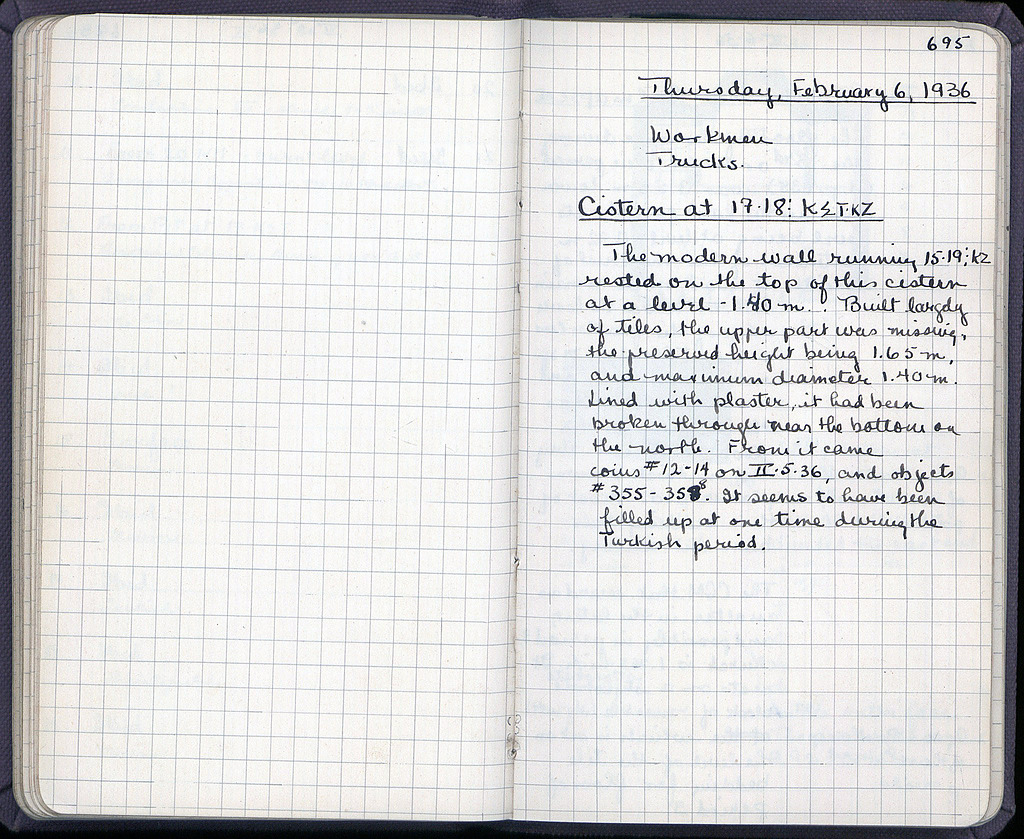 695
Thursday, February 6, 1936
Workmen
Trucks.
Cistern at 17·18: ΚΣΤ·ΚΖ
The modern wall running 15·19; ΚΖ
rested on the top of this cistern
at a level -1.40 m.. Built largely
of tiles, the upper part was missing,
the preserved height being 1.65 m,
and maximum diameter 1.40 m.
Lined with plaster, it had been
broken through near the bottom on
the north. From it came
coins #12-14 on II·5·36, and objects
#355-358. It seems to have been
filled up at one time during the
Turkish period.